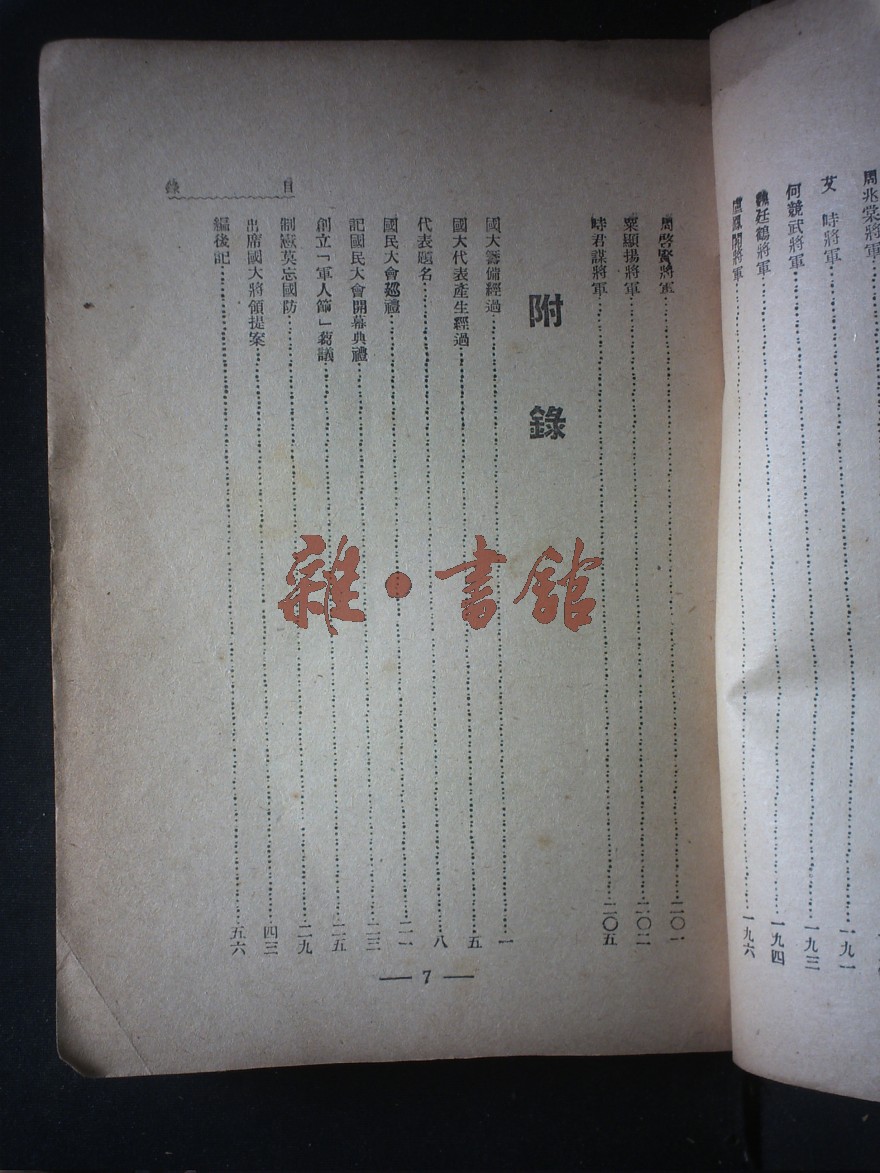 周兆棠將軍
艾　時將軍……一九一
何競武將軍……一九三
魏廷鶴將軍……一九四
將軍……一九六
目　錄
周啓賢將軍……二〇一
粟顯揚將軍……二〇二
時君謀將軍……二〇五
附　錄
國大籌備經過……一
國大代表產生經過……五
代表題名……八
國民大會巡禮……二一
記國民大會開幕典禮……二三
創立「軍人節」芻議……二五
制憲莫忘國防……二九
出席國大將領提案……四三
編後記……五六
— 7 —
雜·書館